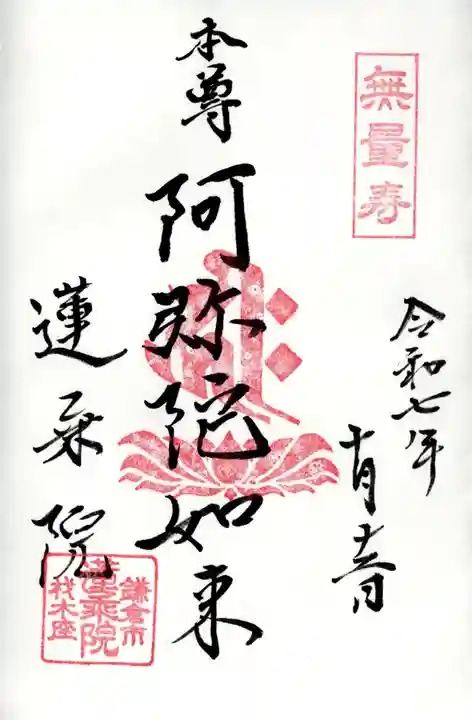 無量寿
令和七年
十月十六日
本尊
阿弥陀如来
蓮乗院
鎌倉市
蓮乗院
材木座